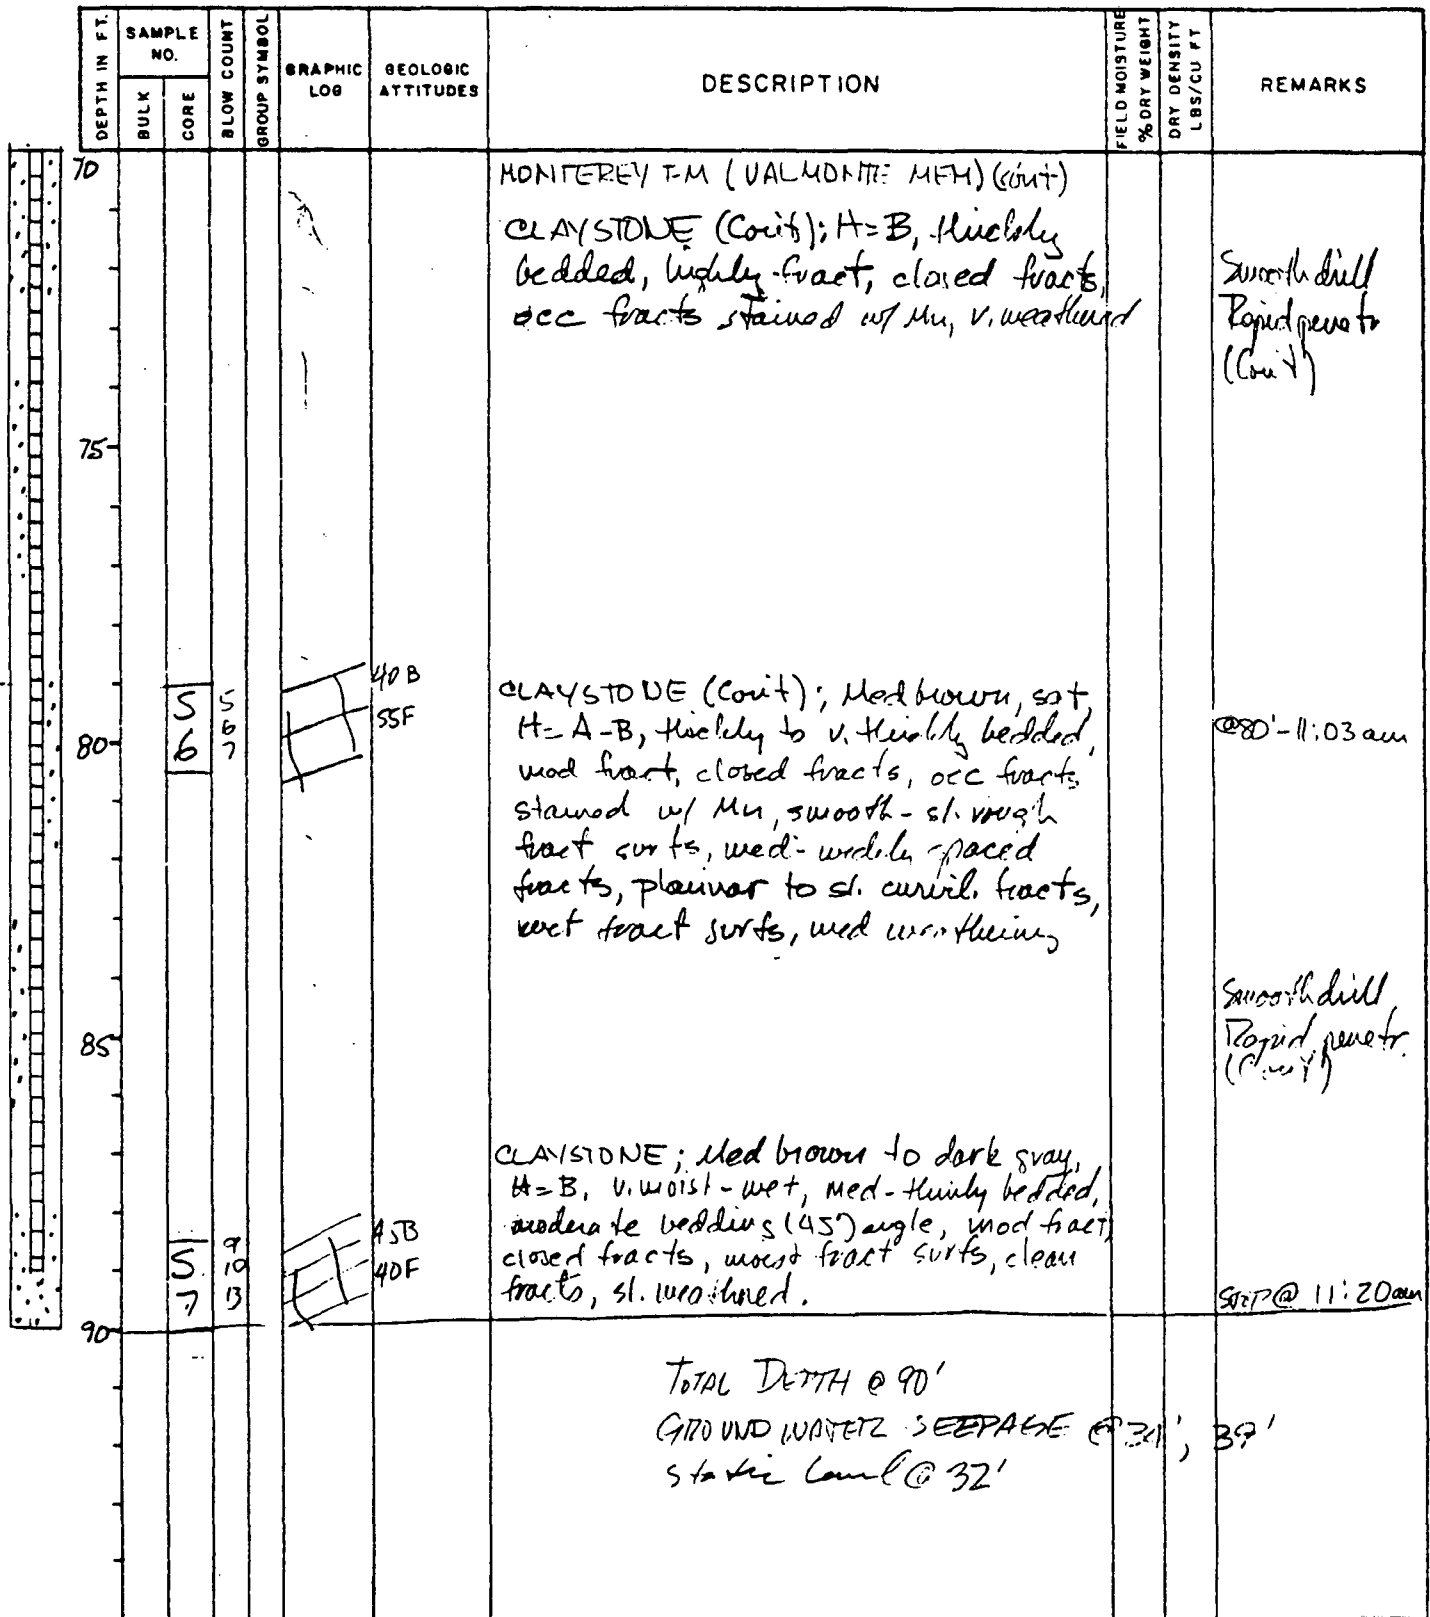 DEPTH IN FT.
SAMPLE NO.
BULK
CORE
BLOW COUNT
GROUP SYMBOL
GRAPHIC LOG
GEOLOGIC ATTITUDES
DESCRIPTION
FIELD MOISTURE % DRY WEIGHT
DRY DENSITY LBS/CU FT
REMARKS
70
MONTEREY FM (VALMONTE MEM) (con't)
CLAYSTONE (Con't); H=B, thickly
bedded, highly fract, closed fracts,
occ fracts stained w/ Mn, v. weathered
Smooth drill
Rapid penetr
(Con't)
75
40B
55F
S 6
5
6
7
80
CLAYSTONE (Con't); Med brown, sat,
H=A-B, thickly to v. thickly bedded,
mod fract, closed fracts, occ fracts
stained w/ Mn, smooth - sl. rough
fract surfs, med-widely spaced
fracts, plannar to sl. curvil. fracts,
wet fract surfs, med weathering
@80'-11:03 am
Smooth drill
Rapid penetr.
(Con't)
85
CLAYSTONE; Med brown to dark gray,
H=B, v. moist-wet, Med-thinly bedded,
moderate bedding (45°) angle, mod fract,
closed fracts, moist fract surfs, clean
fracts, sl. weathered.
45B
40F
S 7
9
10
13
STOP @ 11:20am
90
TOTAL DEPTH @ 90'
GROUND WATER SEEPAGE @
static level @ 32'